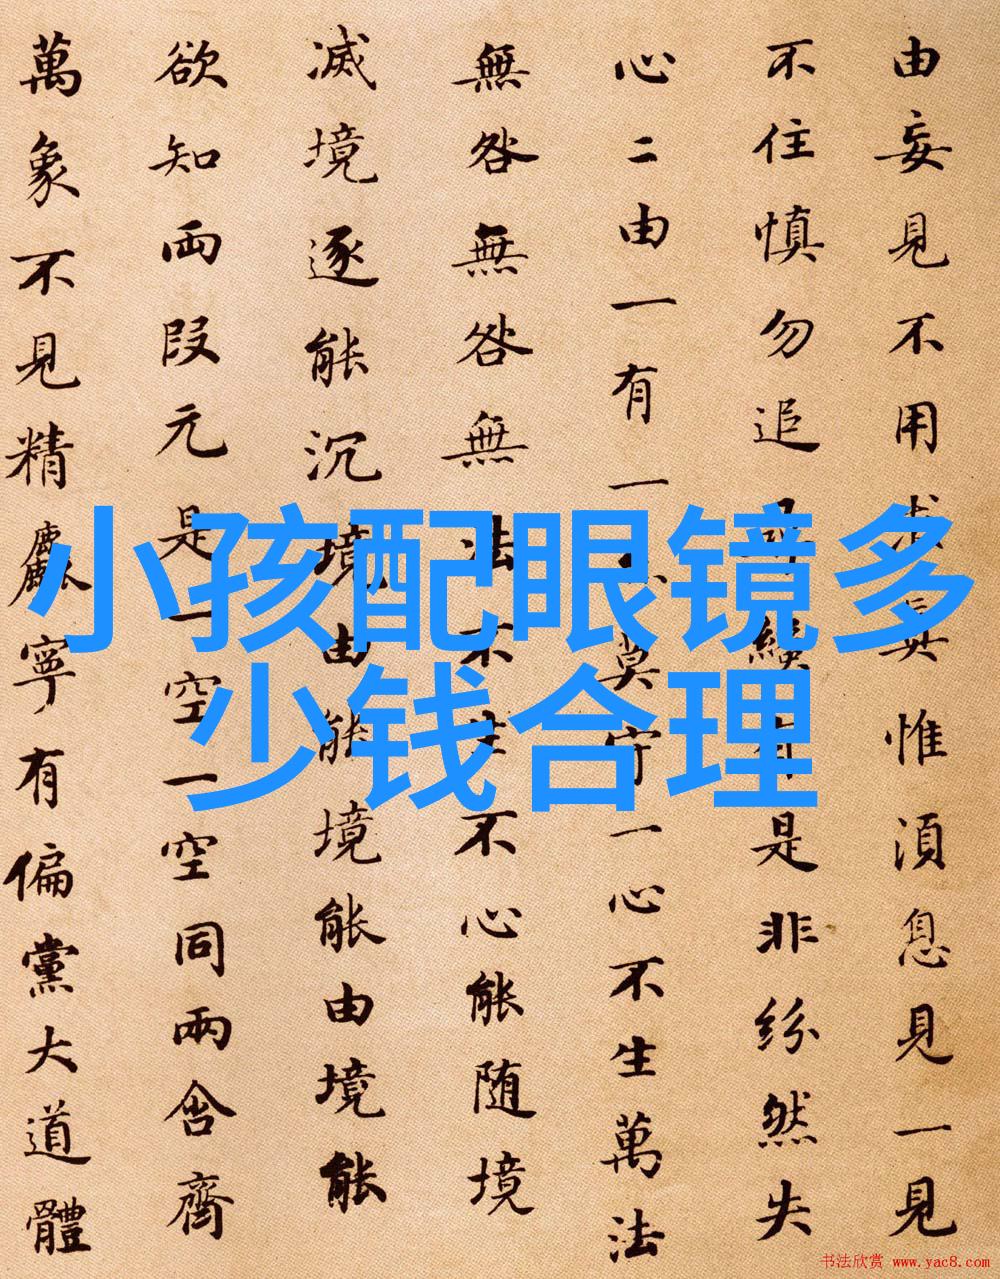 由妄見不用求真惟湏息見一見
不住慎勿追尋纔有是非紛然失
心二由一有一亦莫守一心不生萬法
無咎無咎無法不生不心能随境
滅境逐能沉境由能境能由境能
欲知兩段元是一空一空同兩含齊
萬象不見精麤寧有偏黨大道體
小孩配眼镜多
少钱合理
书法欣赏 www.yac8.com